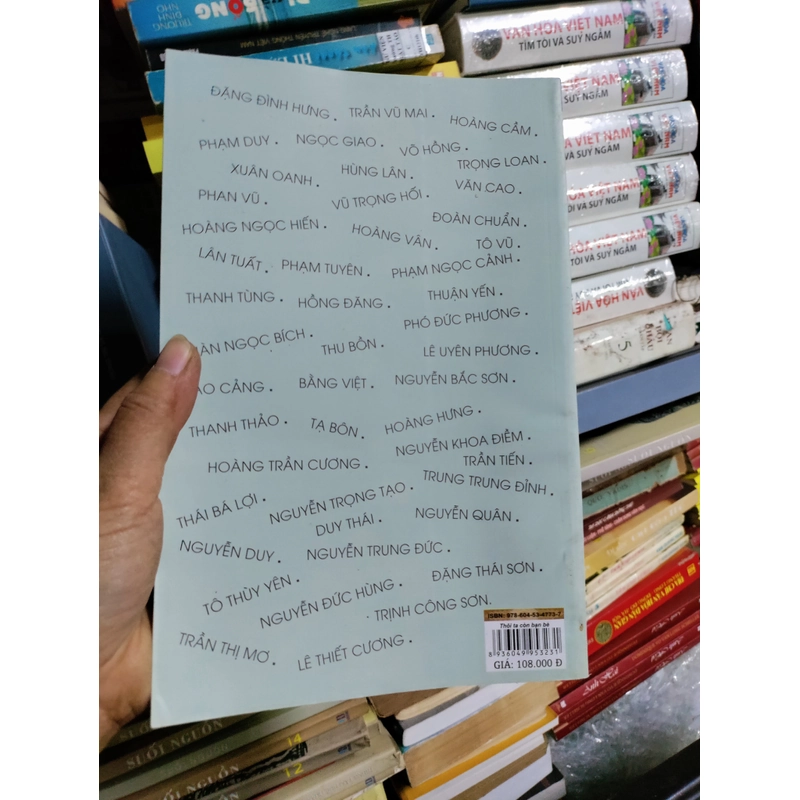 ĐẶNG ĐÌNH HƯNG. TRẦN VŨ MAI. HOÀNG CẦM.
PHẠM DUY. NGỌC GIAO. VÕ HỒNG.
XUÂN OANH. HÙNG LÂN. TRỌNG LOAN.
PHAN VŨ. VŨ TRỌNG HỐI. VĂN CAO.
HOÀNG NGỌC HIẾN. HOÀNG VÂN. ĐOÀN CHUẨN.
TÔ VŨ.
LÂN TUẤT. PHẠM TUYÊN. PHẠM NGỌC CẢNH.
THANH TÙNG. HỒNG ĐĂNG. THUẬN YẾN.
NGỌC BÍCH. THU BỒN. PHÓ ĐỨC PHƯƠNG.
LÊ UYÊN PHƯƠNG.
CẢNG. BẰNG VIỆT. NGUYỄN BẮC SƠN.
THANH THẢO. TẠ BÔN. HOÀNG HƯNG.
HOÀNG TRẦN CƯƠNG. NGUYỄN KHOA ĐIỀM.
TRẦN TIẾN.
THÁI BÁ LỢI. NGUYỄN TRỌNG TẠO. TRUNG TRUNG ĐỈNH.
DUY THÁI. NGUYỄN QUÂN.
NGUYỄN DUY. NGUYỄN TRUNG ĐỨC.
TÔ THÙY YÊN. NGUYỄN ĐỨC HÙNG. ĐẶNG THÁI SƠN.
TRỊNH CÔNG SƠN.
TRẦN THỊ MƠ. LÊ THIẾT CƯƠNG.
ISBN: 978-604-53-4773-7
Thôi ta còn bạn bè
8936049953231
GIÁ: 108.000 Đ
VĂN HÓA VIỆT NAM
TÌM TÒI VÀ SUY NGẪM
SUY NGẪM
A VIỆT NAM
VÀ SUY NGẪM
ÓA VIỆT NAM
ÒI VÀ SUY NGẪM
HÓA VIỆT NAM
TÒI VÀ SUY NGẪM
VĂN HÓA VIỆT
5
SUỐI NGUỒN
14
SUỐI NGUỒN
12
SUỐI NGUỒN